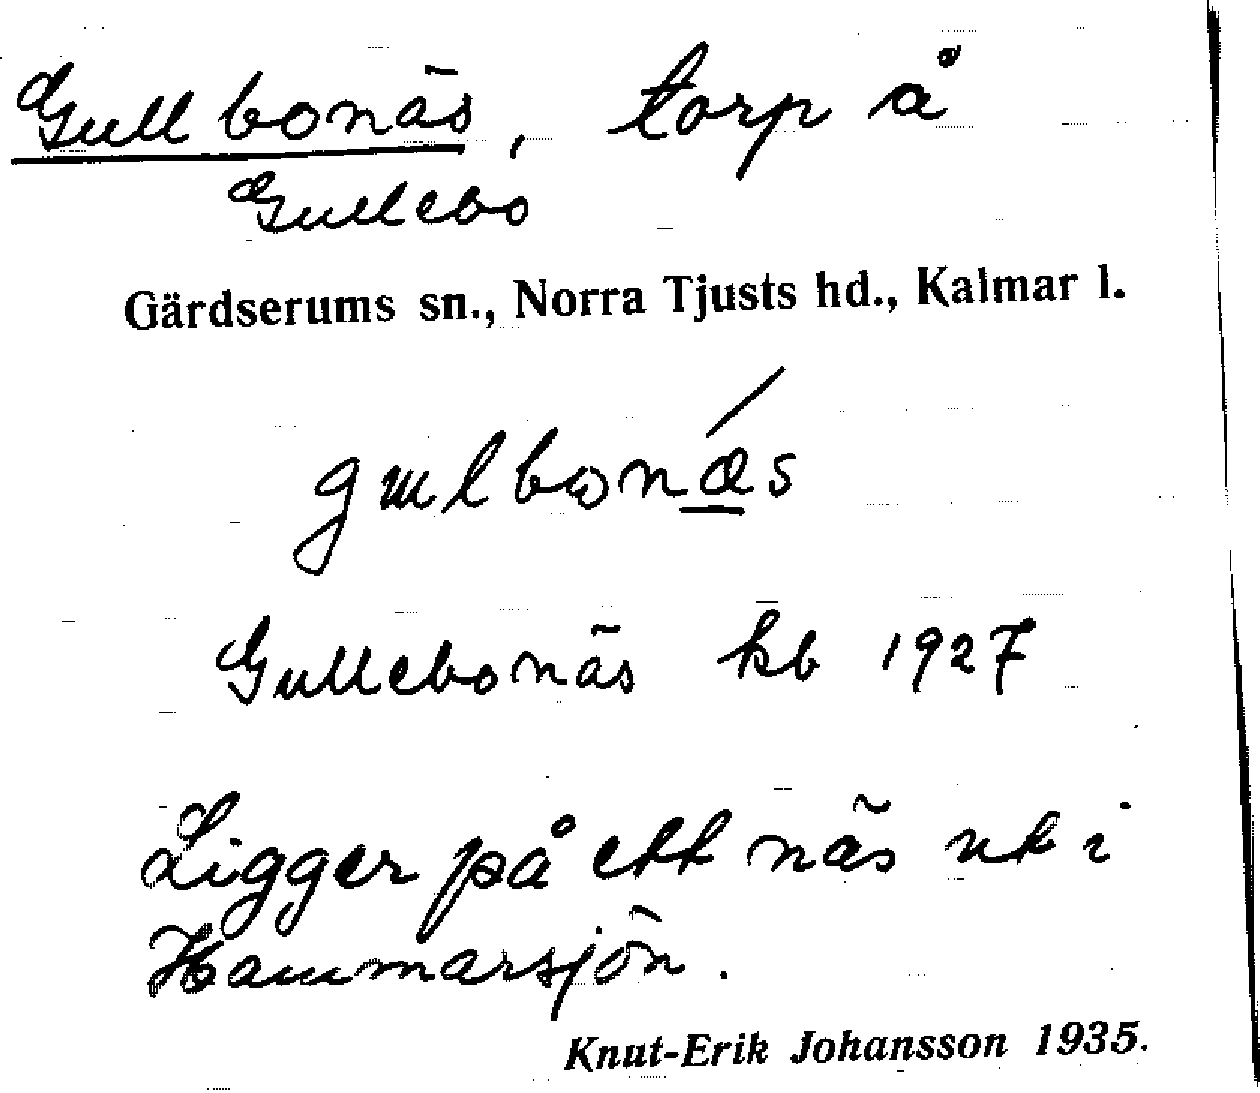 Gullbonäs, torp å
Gullebo
Gärdserums sn., Norra Tjusts hd., Kalmar l.
gɯlbonæ̲´s
Gullebonäs kb 1927
Ligger på ett näs ut i
Hammarsjön.
Knut-Erik Johansson 1935.